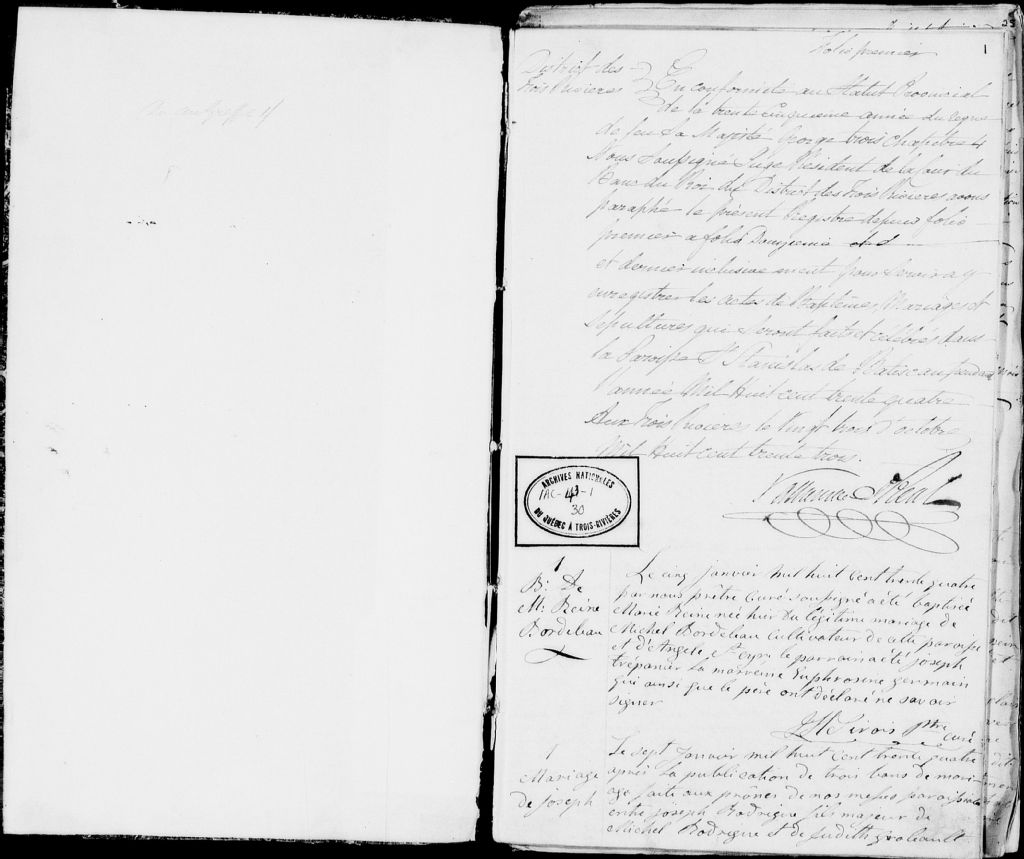 Folio premier
1
District des
Trois Rivieres
En conformité au Statut Provincial
de la trente cinquieme année du regne
de feu Sa Majesté George trois Chapitre 4
Nous Soussigné Juge Président de la Cour du
Banc du Roi du District des Trois Rivieres avons
paraphé le présent Registre depuis folio
premier a folio
et dernier inclusivement pour servir a y
enregistrer les actes de Baptêmes, Mariages et
Sépultures qui seront faits et célébrés dans
la Paroisse St Stanislas de Batiscan pendant
l'année Mil Huit cent trente quatre
Aux Trois Rivieres le Vingt trois d'octobre
Mil Huit cent trente trois.
ARCHIVES NATIONALES
1AC-43-1
30
DU QUÉBEC À TROIS-RIVIÈRES
1
B: De
M: Reine
Bordeleau
Le cinq janvier mil huit cent trente quatre
par nous prêtre curé soussigné a été baptisée
Marie Reine née hier du légitime mariage de
Michel Bordeleau cultivateur de cette paroisse
et d'Angele St Cyr, le parrain a été joseph
trépanier la marreine Euphrosine germain
qui ainsi que le père ont déclaré ne savoir
signer
ptre
curé
1
Mariage
de joseph
Le sept janvier mil huit cent trente quatre
après la publication de trois bans de mari
age faite aux prônes de nos messes paroissiales
entre joseph Rodrigue fils majeur de
Michel Rodrigue et de Judith